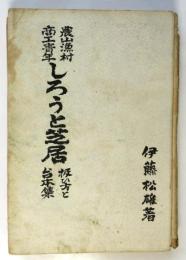 農山漁村
商工青年
しろうと芝居
扱ひ方と
台本集
伊藤松雄著